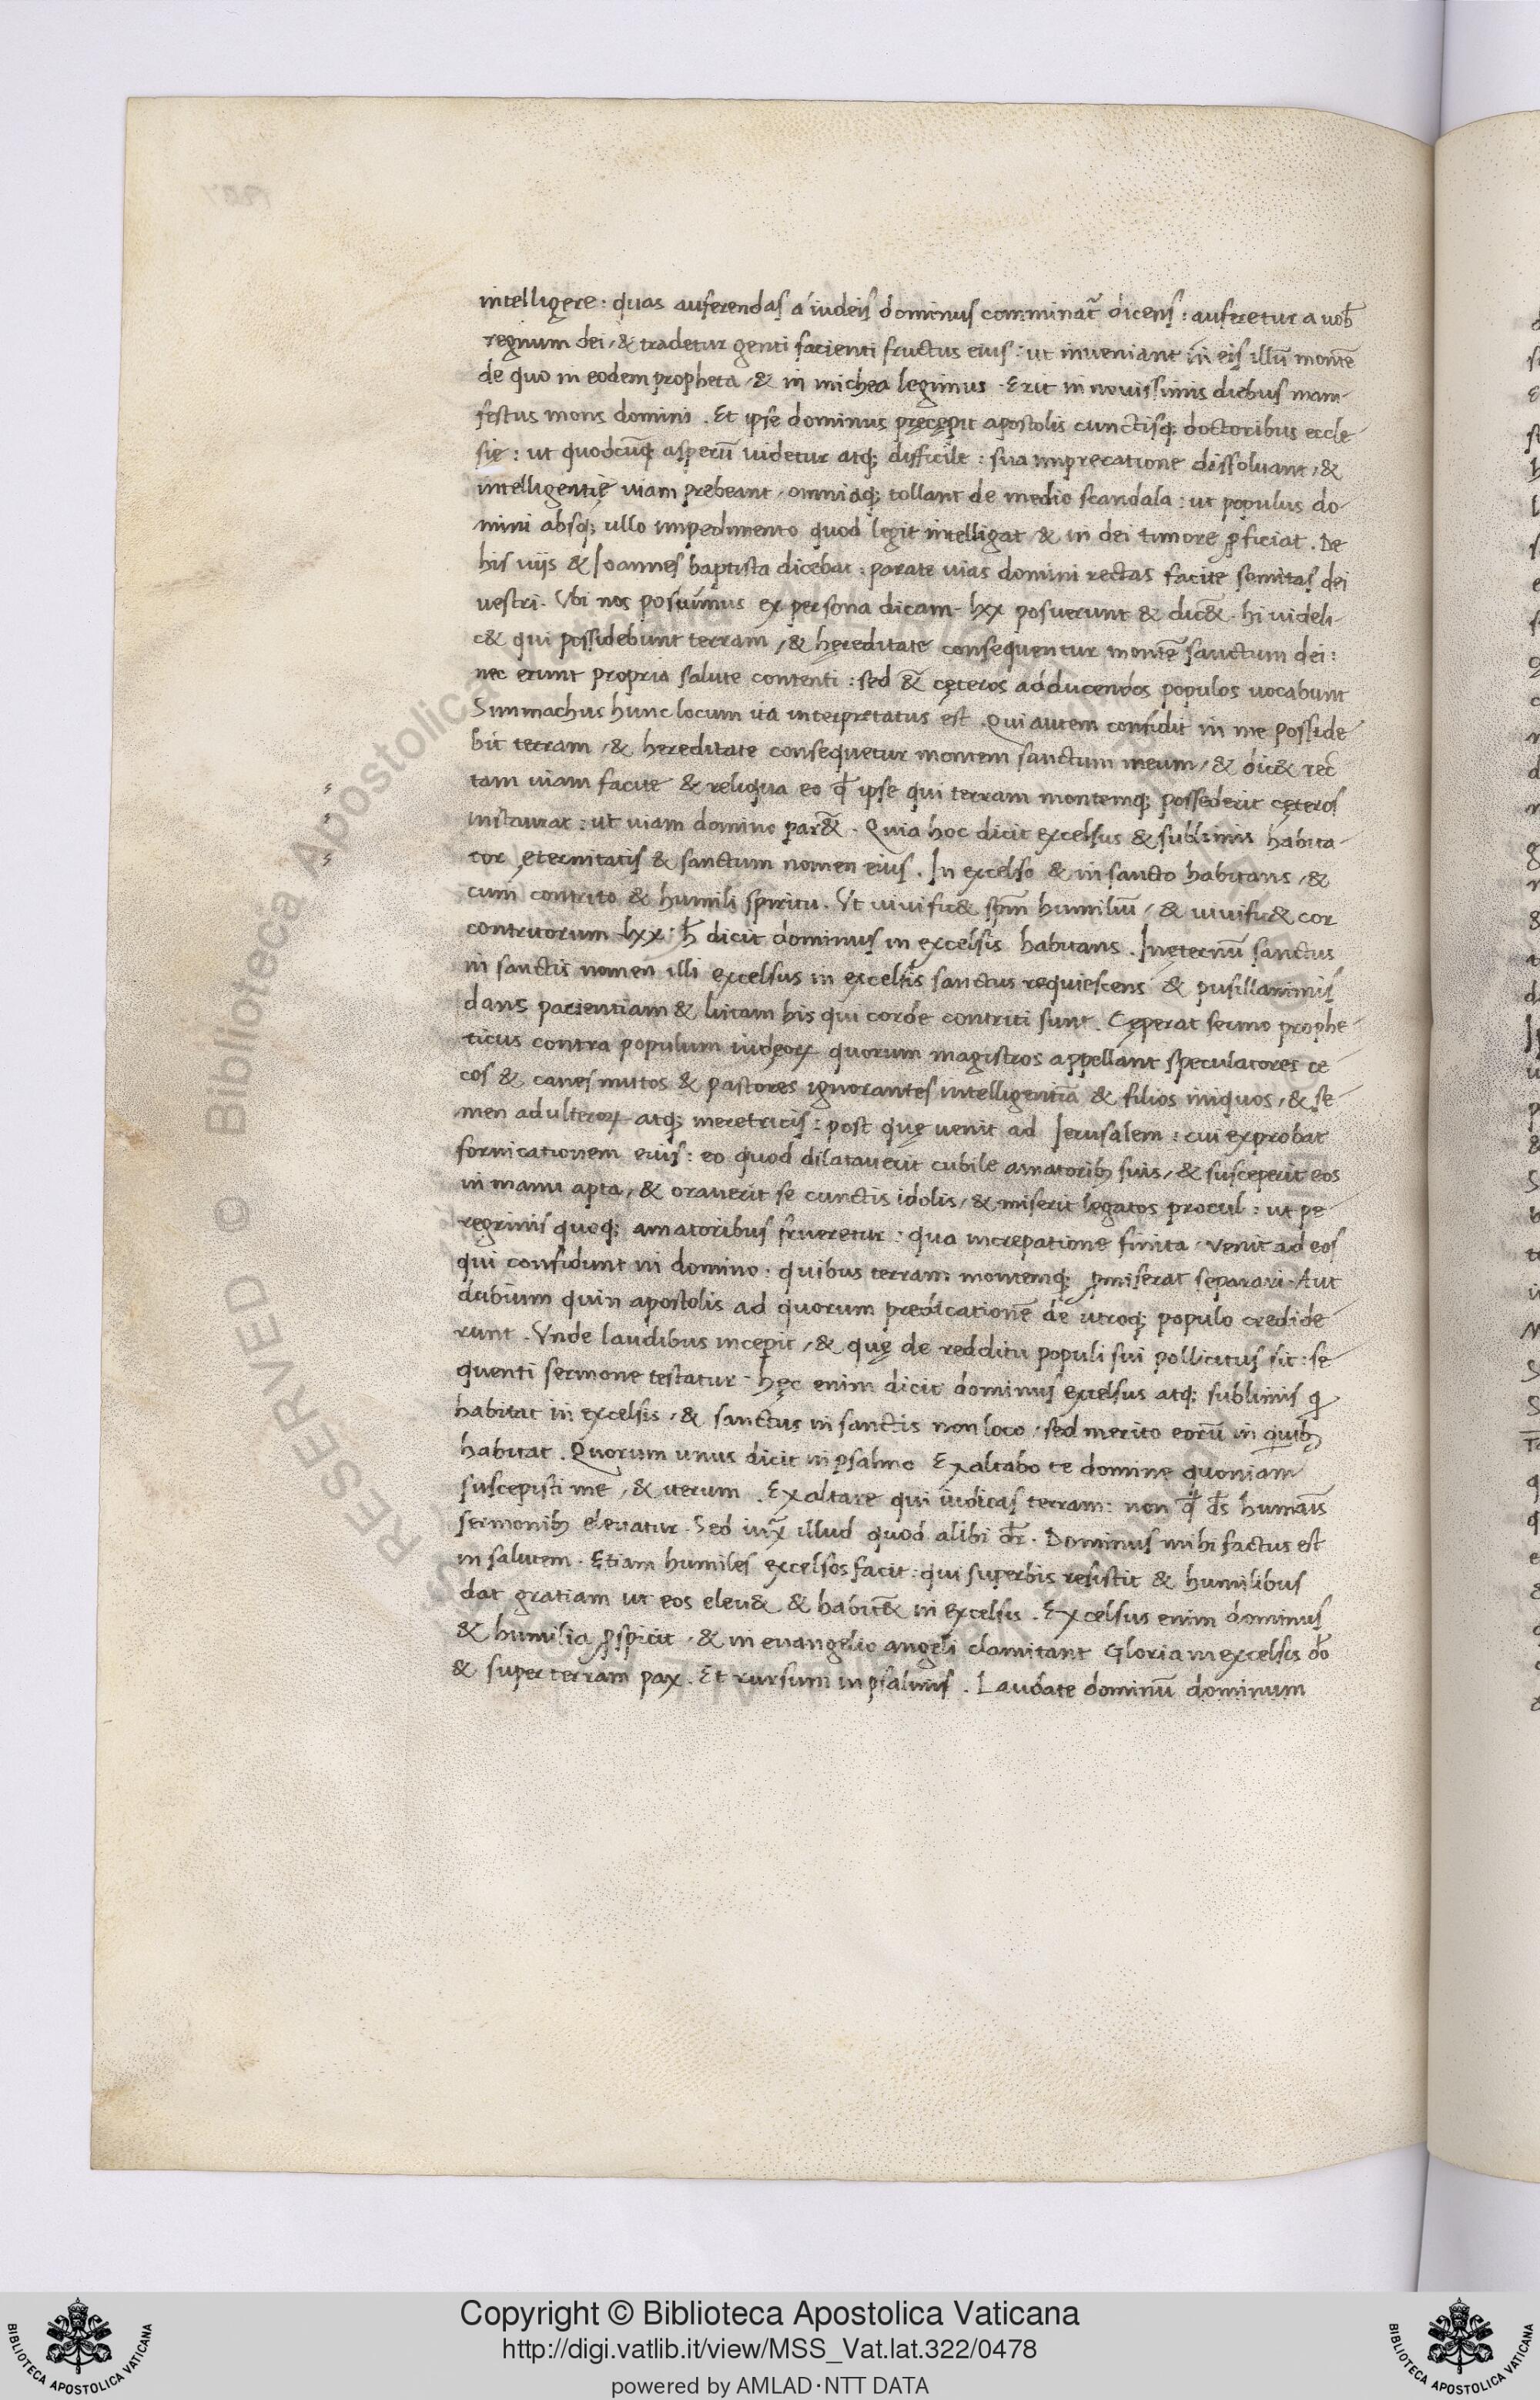 intelligere: quas auferendas a iudeis dominus comminat̃ dicens: auferetur a uob̃
regnum dei, & tradetur genti facienti fructus eius: ut inueniant in eis illũ montẽ
de quo in eodem propheta, & in michea legimus. Erit in nouissimis diebus mani-
festus mons domini. Et ipse dominus pręcępit apostolis cunctisq; doctoribus eccle
się: ut quodcũq; asperũ uidetur atq; difficile: sua imprecatione dissoluant, &
intelligentię uiam prebeant, omniaq; tollant de medio scandala: ut populus do-
mini absq; ullo impedimento quod legit intelligat & in dei timore ꝓficiat. De
his uijs & Joannes baptista dicebat: parate uias domini rectas facite semitas dei
uestri. Vbi nos posuimus ex persona dicam lxx posuerunt & dic&. hi uideli-
c& qui possidebunt terram, & hęreditate consequentur montẽ sanctum dei:
nec erunt propria salute contenti: sed &̃ cęteros adducendos populos uocabunt
Simmachus hunc locum ita interpretatus est. Qui autem confidit in me posside
bit terram, & hereditate consequetur montem sanctum meum, & dic& rec
tam uiam facite & reliqua eo q̃ ipse qui terram montemq; possederit cęteros
instaurat: ut uiam domino par&. Quia hoc dicit excelsus & sublimis habita-
tor ęternitatis & sanctum nomen eius. In excelso & in sancto habitans, &
cum contrito & humili spiritu. Vt uiuific& sp̃m humiliũ, & uiuific& cor
contritorum lxx: h̃ dicit dominus in excelsis habitans. Inęternũ sanctus
in sanctis nomen illi excelsus in excelsis sanctus requiescens & pusillanimis
dans pacientiam & uitam his qui corde contriti sunt. Cęperat sermo prophe-
ticus contra populum iudęoꝝ quorum magistros appellant speculatores ce
cos & canes mutos & pastores ignorantes intelligentiã & filios iniquos, & se
men adulteroꝝ atq; meretricis: post quę uenit ad Jerusalem: cui exprobat
fornicationem eius: eo quod dilatauerit cubile amatorib; suis, & susceperit eos
in manu apta, & orauerit se cunctis idolis, & miserit legatos procul: ut pe-
regrinis quoq; amatoribus frueretur: qua increpatione finita uenit ad eos
qui confidunt in domino: quibus terram montemq; ꝓmiserat separari. Aut
dubium quin apostolis ad quorum predicationẽ de utroq; populo credide
runt. Vnde laudibus incepit, & quę de redditu populi sui pollicitus sit: se
quenti sermone testatur. hęc enim dicit dominus excelsus atq; sublimis q
habitat in excelsis, & sanctus in sanctis non loco sed merito eorũ in quib;
habitat. Quorum unus dicit in psalmo Exaltabo te domine quoniam
suscepisti me, & iterum. Exaltare qui iudicas terram: non q̃ d̃s humañs
sermonib; eleuatur. Sed iux̃ illud quod alibi dr̃. Dominus mihi factus est
in salutem. Etiam humiles excelsos facit: qui superbis resistit & humilibus
dat gratiam ut eos eleu& & habit& in excelsis. Excelsus enim dominus
& humilia ꝓspicit, & in euangelio angeli clamitant Gloria in excelsis dõ
& super terram pax. Et rursum in psalmis. Laudate dominũ dominum
RESERVED © Biblioteca Apostolica
Copyright © Biblioteca Apostolica Vaticana
http://digi.vatlib.it/view/MSS_Vat.lat.322/0478
powered by AMLAD·NTT DATA
BIBLIOTECA APOSTOLICA VATICANA
BIBLIOTECA APOSTOLICA VATICANA